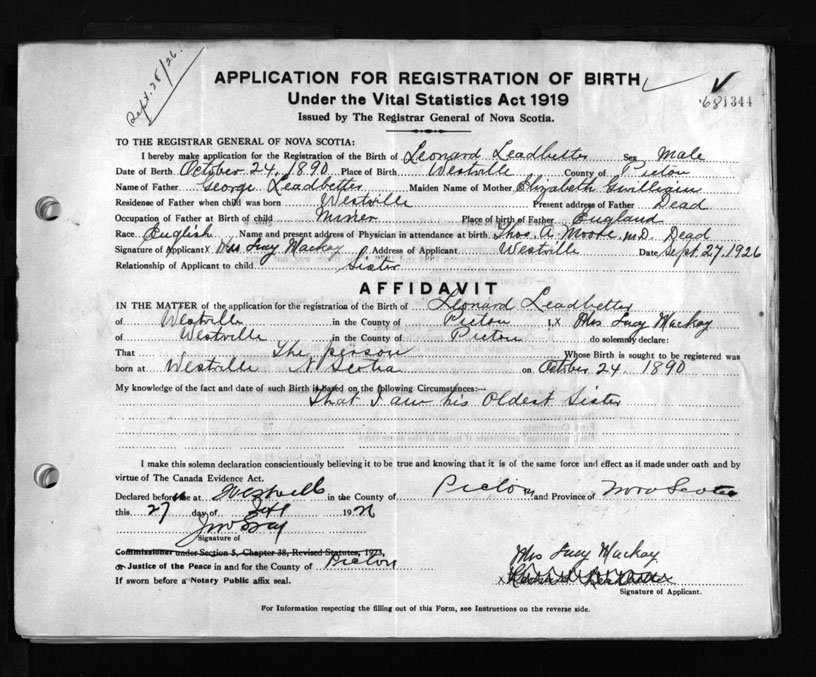 Sept. 28/26.
APPLICATION FOR REGISTRATION OF BIRTH
Under the Vital Statistics Act 1919
1344
Issued by The Registrar General of Nova Scotia.
TO THE REGISTRAR GENERAL OF NOVA SCOTIA:
I hereby make application for the Registration of the Birth of Leonard Leadbetter Sex Male
Date of Birth October 24, 1890 Place of Birth Westville County of Pictou
Name of Father George Leadbetter Maiden Name of Mother Elizabeth
Residence of Father when child was born Westville Present address of Father Dead
Occupation of Father at Birth of child Miner Place of birth of Father England
Race English Name and present address of Physician in attendance at birth Thos. A. Moore M.D. Dead
Signature of Applicant X Mrs Lucy Mackay Address of Applicant Westville Date Sept. 27, 1926
Relationship of Applicant to child Sister
AFFIDAVIT
IN THE MATTER of the application for the registration of the Birth of Leonard Leadbetter
of Westville in the County of Pictou I, X Mrs Lucy Mackay
of Westville in the County of Pictou do solemnly declare:
That The person Whose Birth is sought to be registered was
born at Westville N Scotia on October 24 1890
My knowledge of the fact and date of such Birth is based on the following Circumstances:—
That I am his Oldest Sister
I make this solemn declaration conscientiously believing it to be true and knowing that it is of the same force and effect as if made under oath and by
virtue of The Canada Evidence Act.
Declared before me at Westville in the County of Pictou and Province of Nova Scotia
this 27 day of Sept 1926
Signature of
Commissioner under Section 5, Chapter 38, Revised Statutes, 1923,
or Justice of the Peace in and for the County of Pictou
Mrs Lucy Mackay
If sworn before a Notary Public affix seal.
X
Signature of Applicant.
For Information respecting the filling out of this Form, see Instructions on the reverse side.